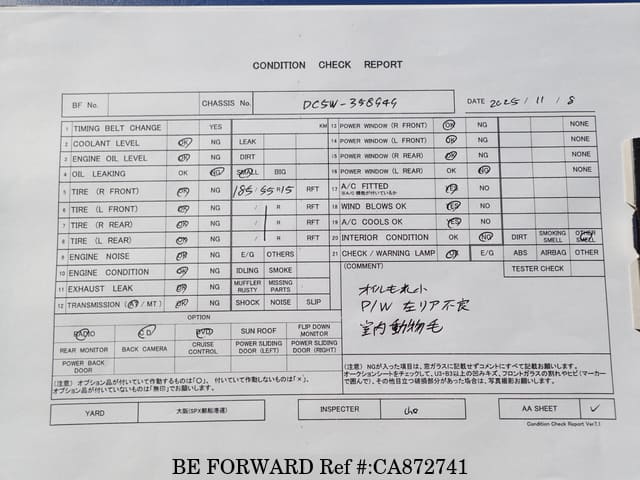 CONDITION CHECK REPORT
BF No. CHASSIS No. DATE 2025/11/8
1 TIMING BELT CHANGE YES KM
2 COOLANT LEVEL OK NG LEAK
3 ENGINE OIL LEVEL OK NG DIRT
4 OIL LEAKING OK NG SMALL BIG
5 TIRE (R FRONT) OK NG 185/55R15 RFT
6 TIRE (L FRONT) OK NG / R RFT
7 TIRE (R REAR) OK NG / R RFT
8 TIRE (L REAR) OK NG / R RFT
9 ENGINE NOISE OK NG E/G OTHERS
10 ENGINE CONDITION OK NG IDLING SMOKE
11 EXHAUST LEAK OK NG MUFFLER RUSTY MISSING PARTS
12 TRANSMISSION (AT/MT.) OK NG SHOCK NOISE SLIP
OPTION
RADIO CD DVD SUN ROOF FLIP DOWN MONITOR
REAR MONITOR BACK CAMERA CRUISE CONTROL POWER SLIDING DOOR (LEFT) POWER SLIDING DOOR (RIGHT)
POWER BACK DOOR
(注意) オプション品が付いていて作動するものは「○」、付いていて作動しないものは「×」、
オプション品が付いていないものは「無印」でお願いします。
13 POWER WINDOW (R FRONT) OK NG NONE
14 POWER WINDOW (L FRONT) OK NG NONE
15 POWER WINDOW (R REAR) OK NG NONE
16 POWER WINDOW (L REAR) OK NG NONE
17 A/C FITTED ※A/C機能が付いているか YES NO
18 WIND BLOWS OK YES NO
19 A/C COOLS OK YES NO
20 INTERIOR CONDITION OK NG DIRT SMOKING SMELL OTHER SMELL
21 CHECK/WARNING LAMP OK E/G ABS AIRBAG OTHER
(COMMENT) TESTER CHECK
オイルもれ小
P/W 左リア不良
室内動物毛
(注意) NGが入った項目は、窓ガラスに記載せずコメントにすべて記載お願いします。
オークションシートをチェックして、U3・B3以上の凹みキズ、フロントガラスの割れやヒビ(マーカー
で囲んで)、その他目立つ破損部分があった場合は、写真撮影お願いします。
YARD 大阪(SPX郵船港運) INSPECTER AA SHEET ✓
Condition Check Report Ver7.1
BE FORWARD Ref #:CA872741